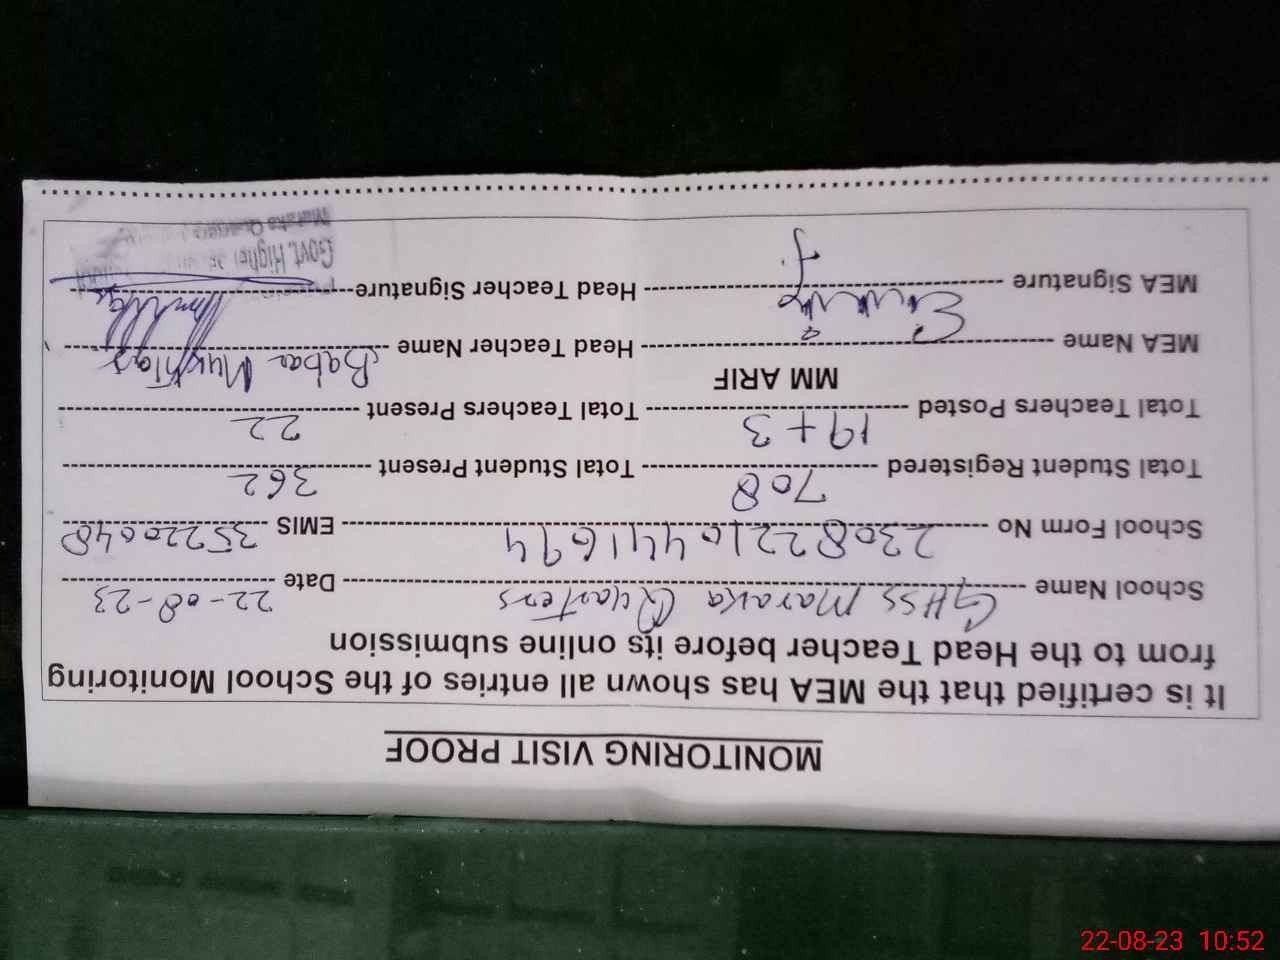 MONITORING VISIT PROOF
It is certified that the MEA has shown all entries of the School Monitoring
from to the Head Teacher before its online submission
School Name GHSS Maraka Quarters Date 22-08-23
School Form No 23082210441694 EMIS 35220048
Total Student Registered 708 Total Student Present 362
Total Teachers Posted 19+3 Total Teachers Present 22
MM ARIF
MEA Name Head Teacher Name Babar Mushtaq
MEA Signature Head Teacher Signature
Govt. Higher
Maraka Quarters
22-08-23 10:52